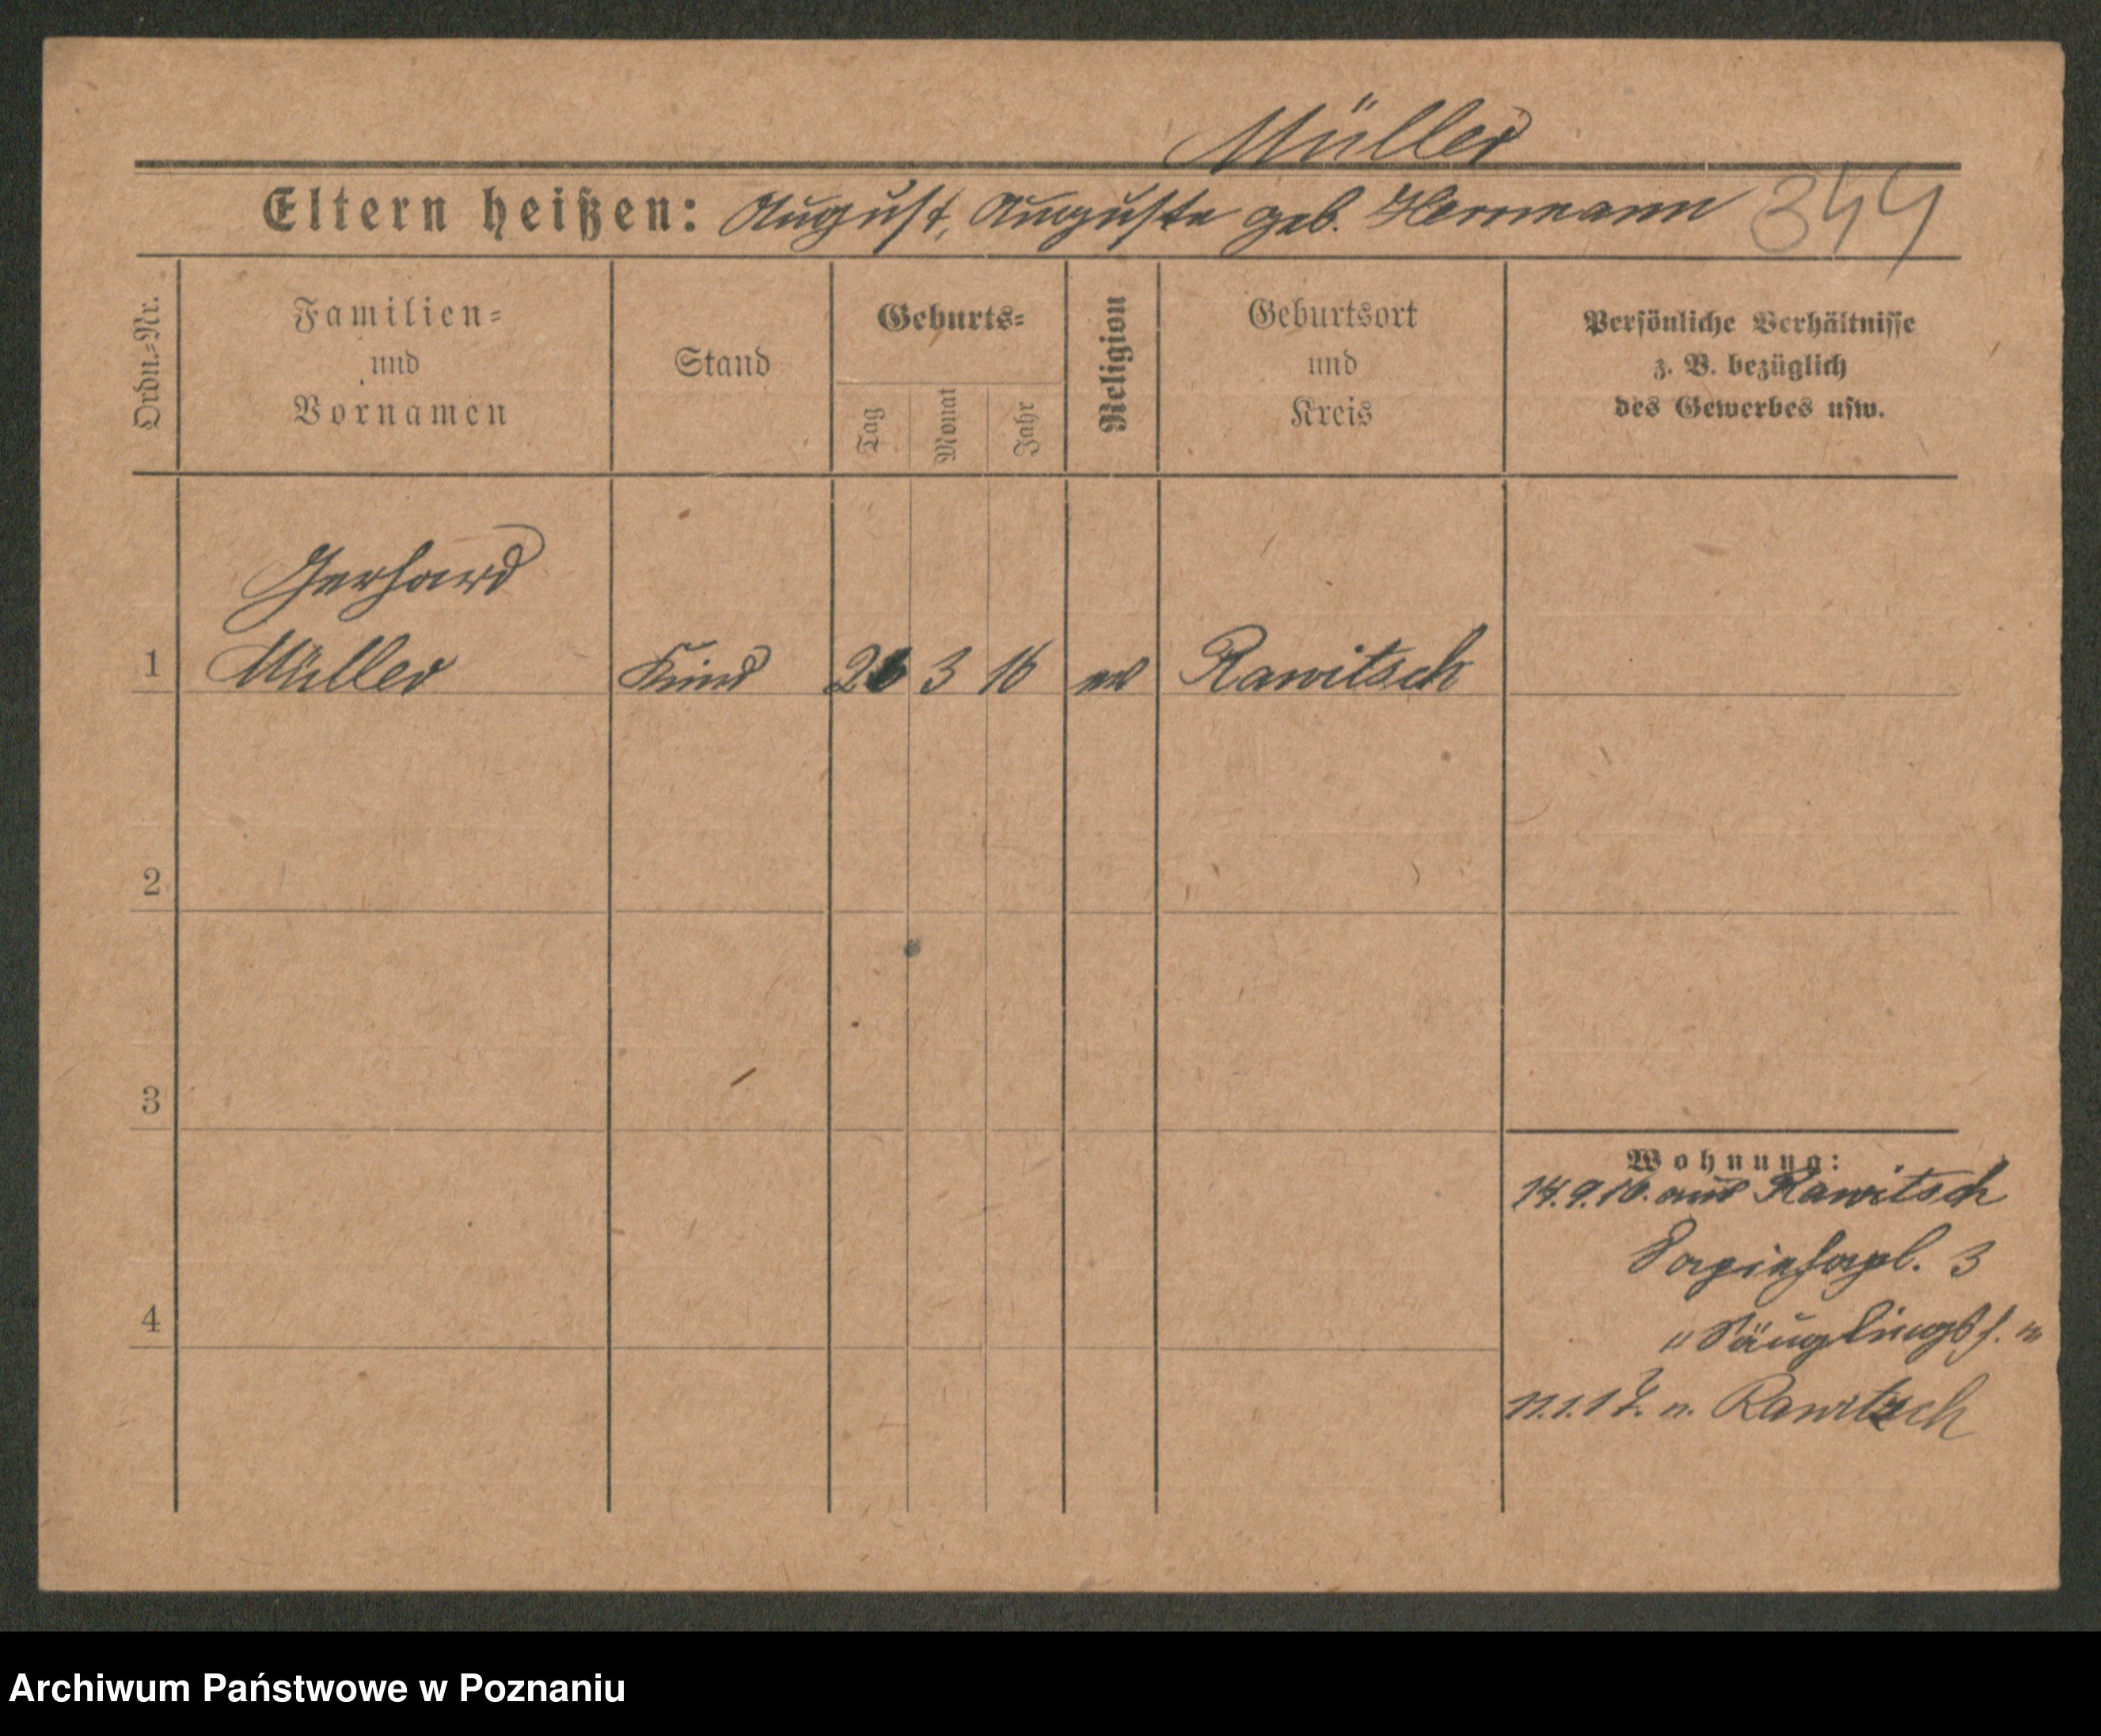 Müller
Eltern heißen: August, Auguste geb. Herrmann 344
Ordn.=Nr.
Familien=
und
Vornamen
Stand
Geburts=
Tag
Monat
Jahr
Religion
Geburtsort
und
Kreis
Persönliche Verhältnisse
z. B. bezüglich
des Gewerbes usw.
Gerhard
1 Müller Kind 26 3 16 ev Rawitsch
2
3
4
Wohnung:
14.9.16. aus Rawitsch
Sapiehapl. 3
"Säuglingsh."
11.1.17. n. Rawitsch
Archiwum Państwowe w Poznaniu